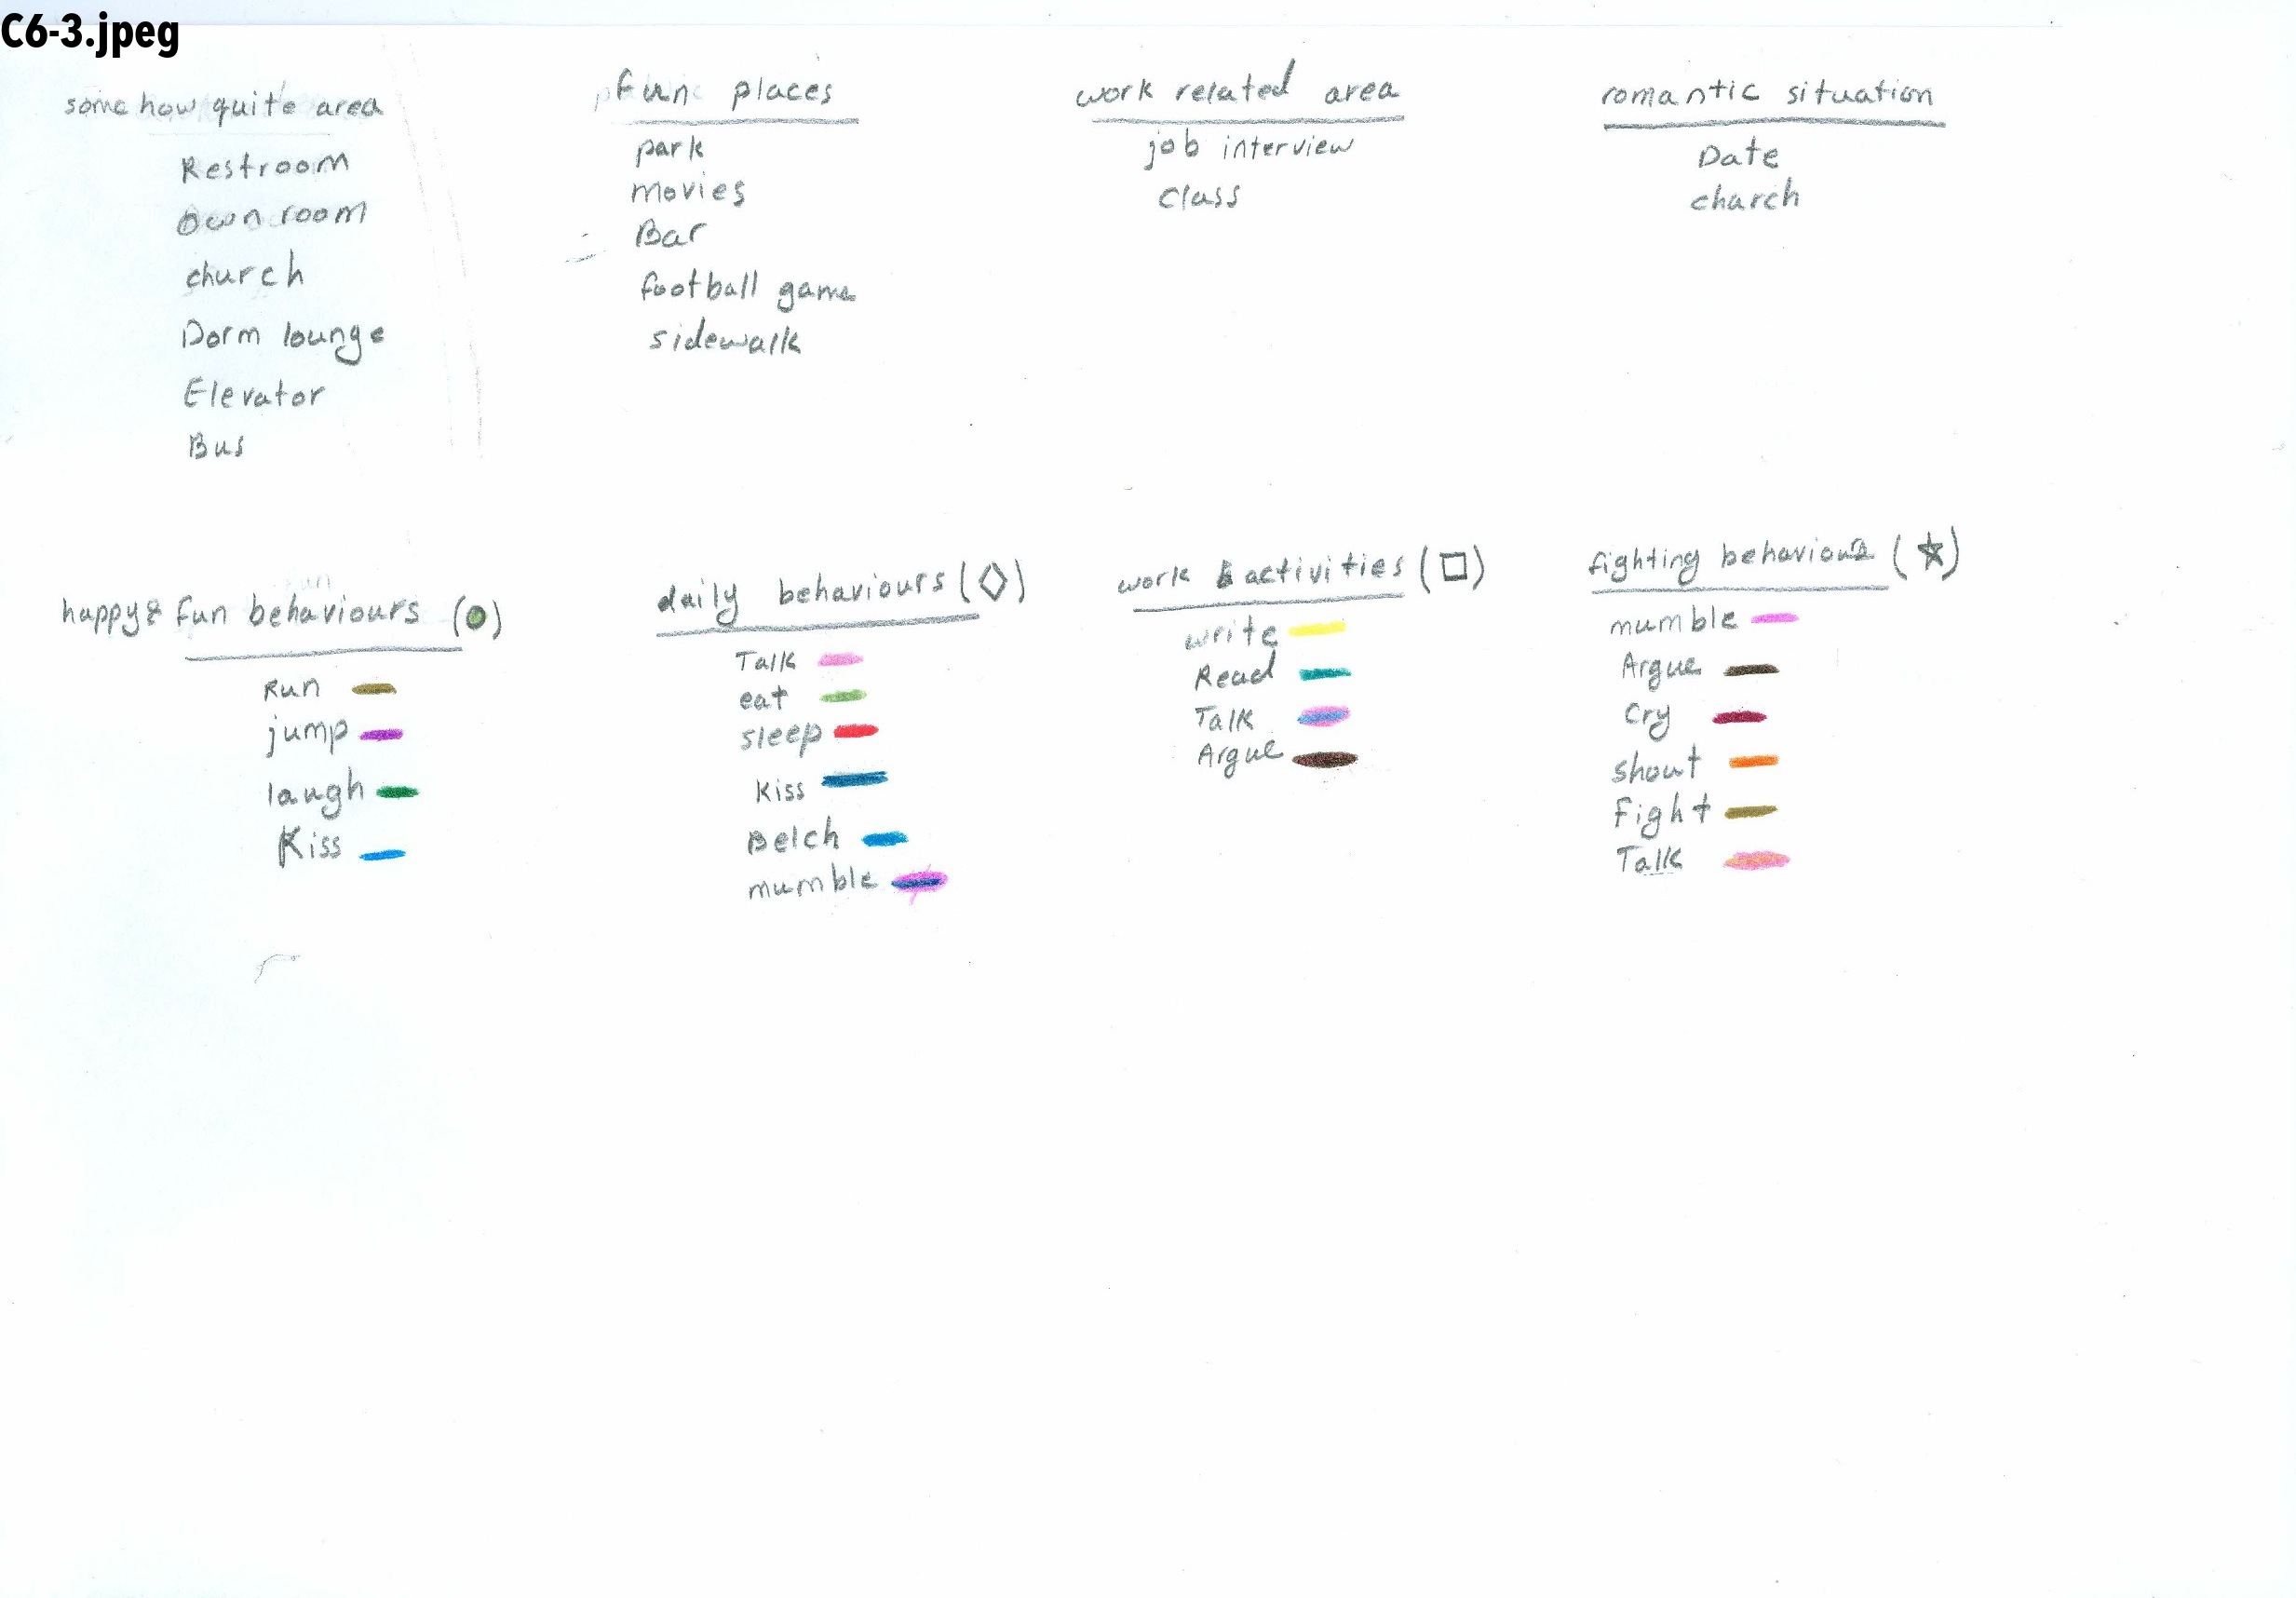 C6-3.jpeg
some how quite area
Restroom
Own room
church
Dorm lounge
Elevator
Bus
fun places
park
movies
Bar
football game
sidewalk
work related area
job interview
class
romantic situation
Date
charch
happy & fun behaviours (●)
Run
jump
laugh
Kiss
daily behaviours (◇)
Talk
eat
sleep
Kiss
Belch
mumble
work activities (□)
write
Read
Talk
Argue
fighting behaviours (☆)
mumble
Argue
Cry
shout
Fight
Talk